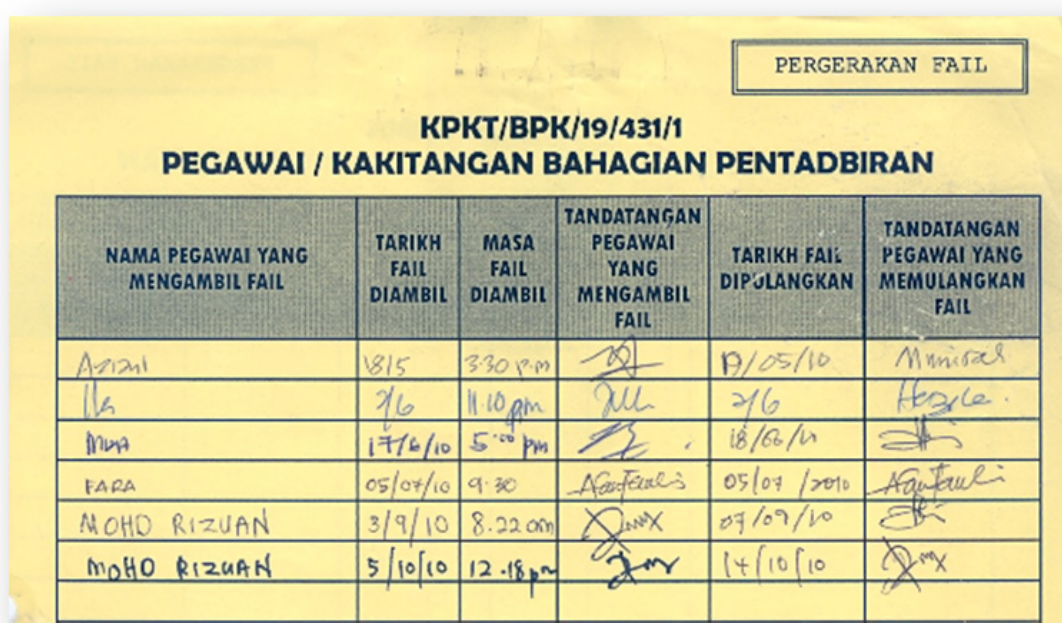 PERGERAKAN FAIL
KPKT/BPK/19/431/1
PEGAWAI / KAKITANGAN BAHAGIAN PENTADBIRAN
NAMA PEGAWAI YANG MENGAMBIL FAIL
TARIKH FAIL DIAMBIL
MASA FAIL DIAMBIL
TANDATANGAN PEGAWAI YANG MENGAMBIL FAIL
TARIKH FAIL DIPULANGKAN
TANDATANGAN PEGAWAI YANG MEMULANGKAN FAIL
Azizul 18/5 3.30 p.m /05/10
2/6 11.10 pm 2/6
17/6/10 5.00 pm
FARA 05/07/10 9.30 05/07/2010
MOHD RIZUAN 3/9/10 8.22 am 07/09/10
MOHD RIZUAN 5/10/10 12.18 pm 14/10/10